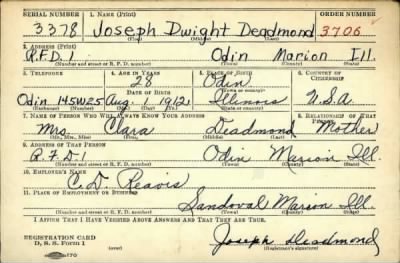 SERIAL NUMBER 1. NAME (Print) ORDER NUMBER
3378 Joseph Dwight Deadmond 3706
(First) (Middle) (Last)
2. ADDRESS (Print)
R.F.D. Odin Marion Ill.
(Number and street or R. F. D. number) (Town) (County) (State)
3. TELEPHONE 4. AGE IN YEARS 5. PLACE OF BIRTH 6. COUNTRY OF CITIZENSHIP
28 Odin
DATE OF BIRTH (Town or county)
Odin 145W25 Aug. 1 1912 Illinois U.S.A.
(Exchange) (Number) (Mo.) (Day) (Yr.) (State or country)
7. NAME OF PERSON WHO WILL ALWAYS KNOW YOUR ADDRESS 8. RELATIONSHIP OF THAT PERSON
Mrs. Clara Deadmond Mother
(Mr., Mrs., Miss) (First) (Middle) (Last)
9. ADDRESS OF THAT PERSON
R.F.D-1 Odin Marion Ill.
(Number and street or R. F. D. number) (Town) (County) (State)
10. EMPLOYER'S NAME
C.D. Reavis
11. PLACE OF EMPLOYMENT OR BUSINESS
Sandoval Marion Ill.
(Number and street or R. F. D. number) (Town) (County) (State)
I AFFIRM THAT I HAVE VERIFIED ABOVE ANSWERS AND THAT THEY ARE TRUE.
REGISTRATION CARD
D. S. S. Form 1 Joseph Deadmond
(over) (Registrant's signature)